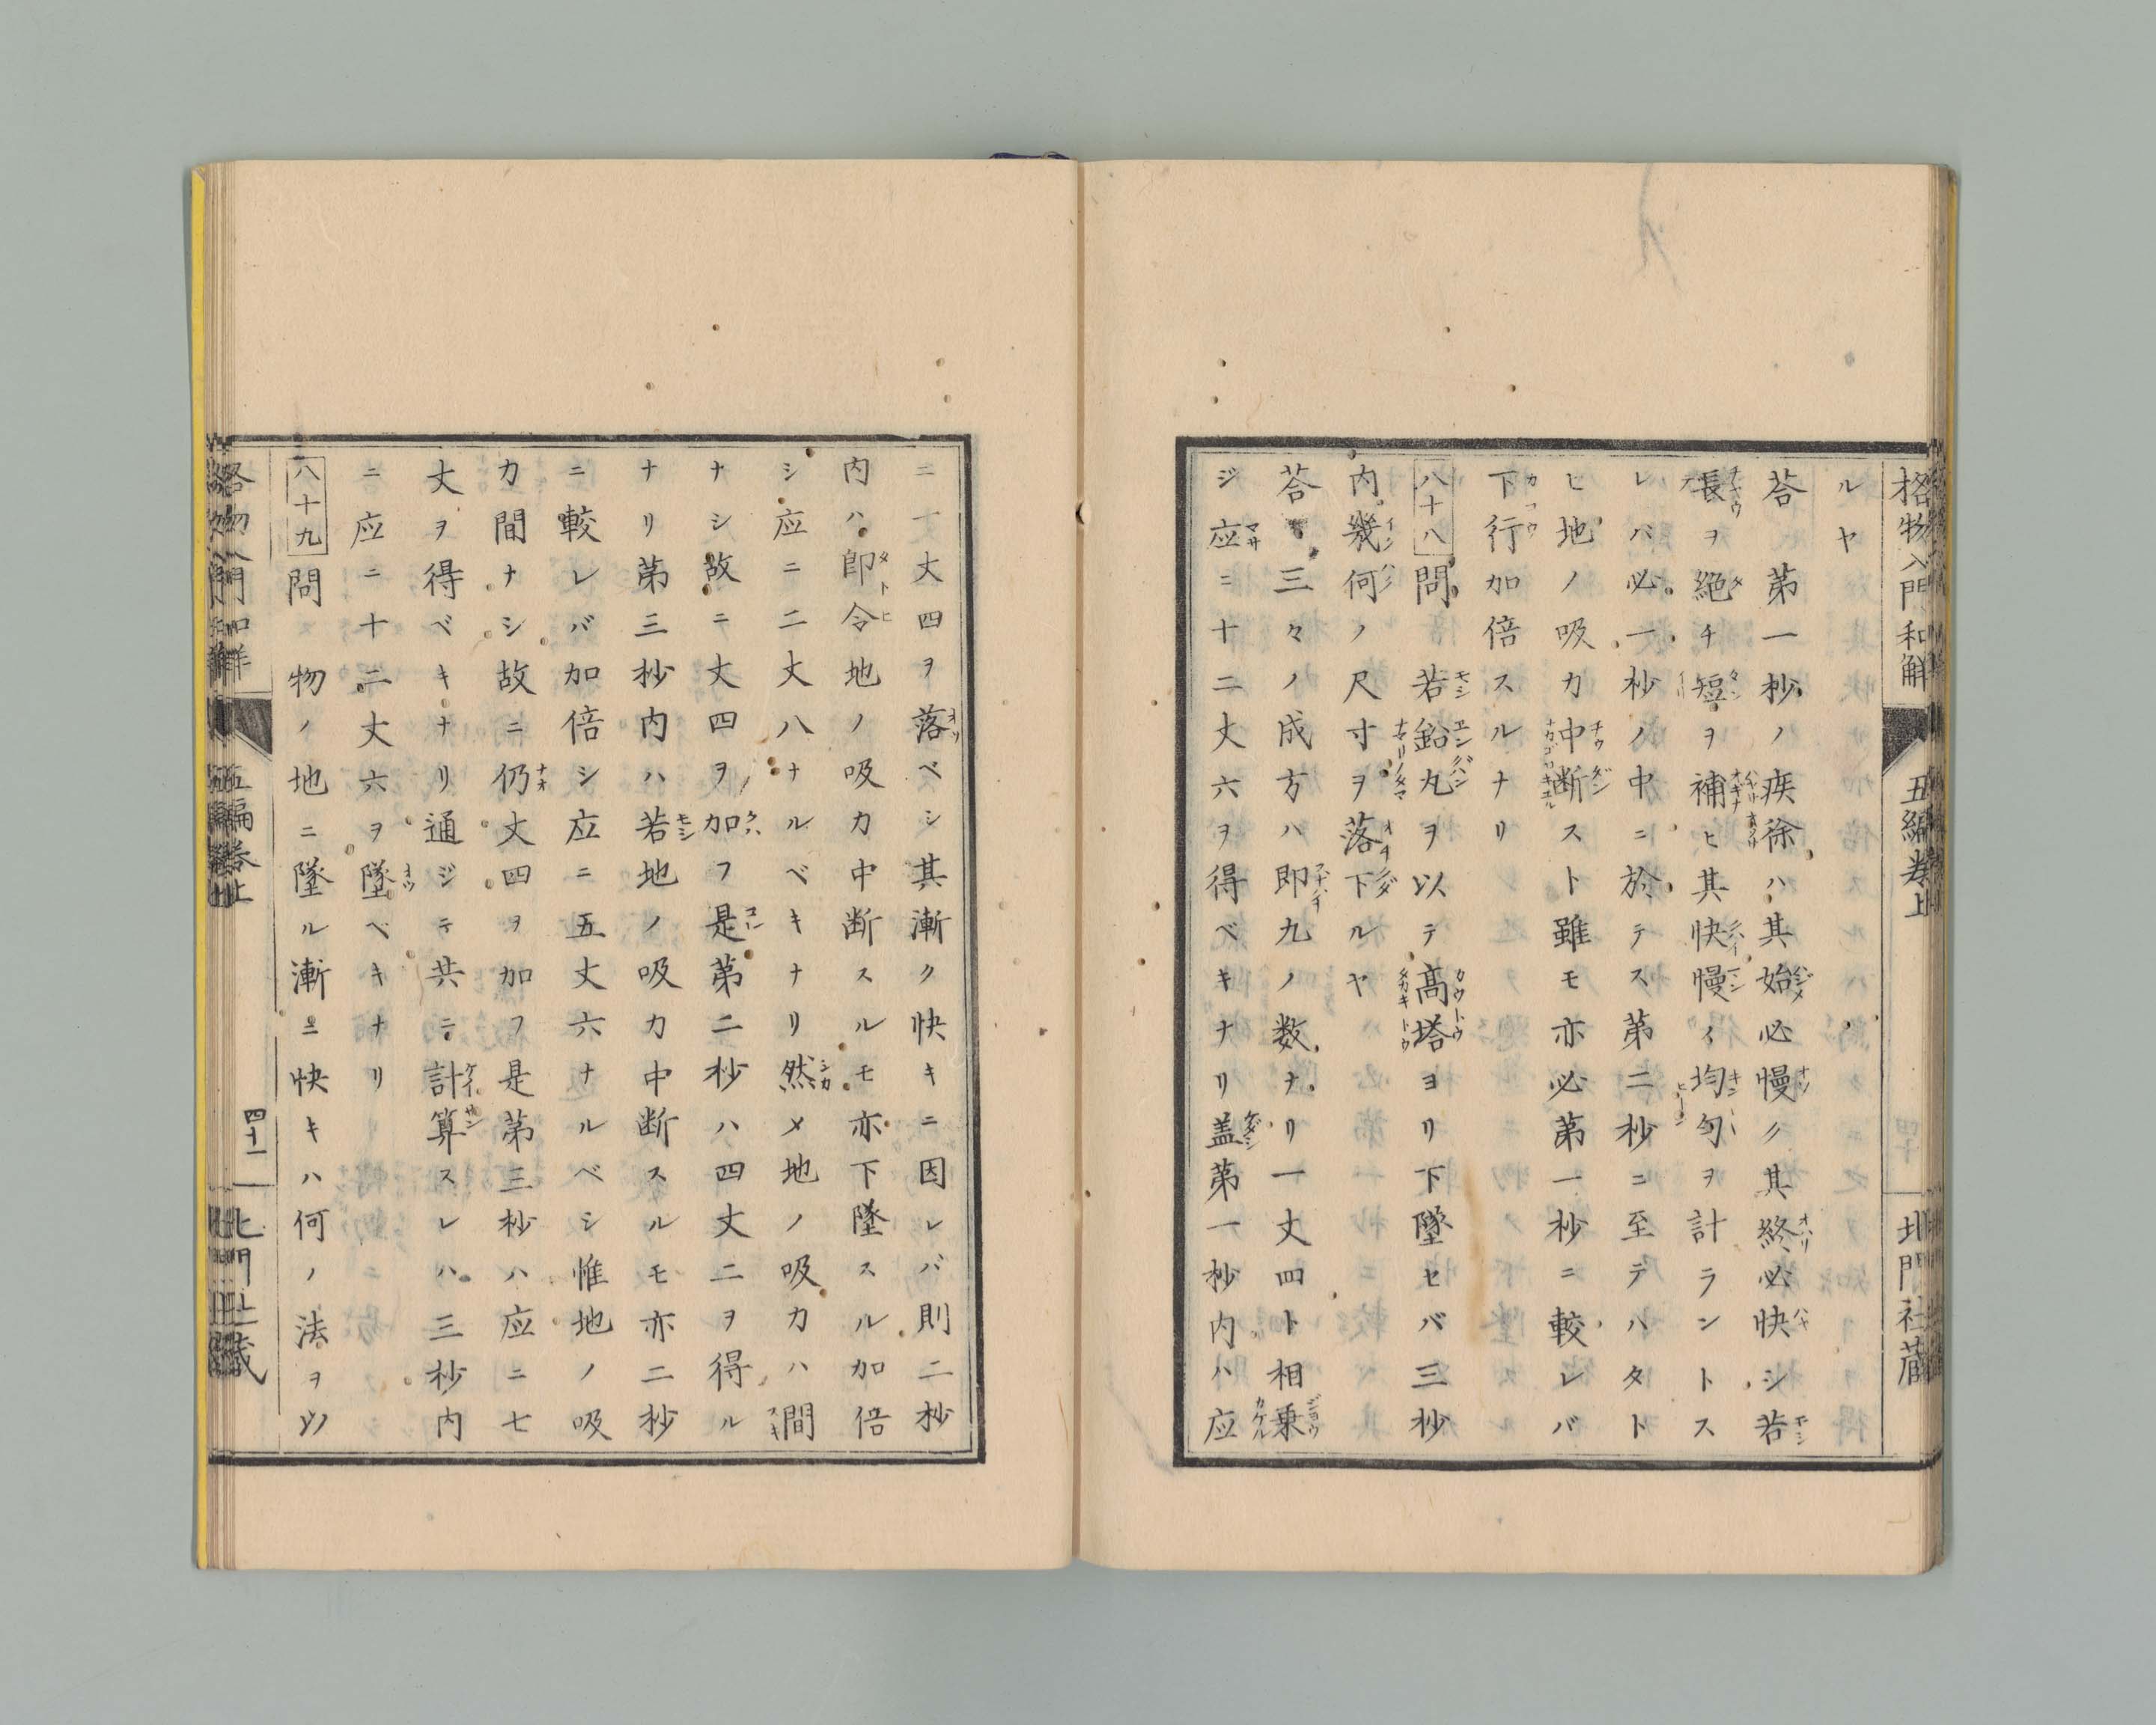 格物入門和解 五編卷上 北門社蔵
ルヤ
荅 第一秒ノ疾徐ハ其始必慢ク其終必快シ若
長ヲ絶チ短ヲ補ヒ其快慢ノ均匀ヲ計ラントス
レバ必一秒ノ中ニ於テス第二秒ニ至テハタト
ヒ地ノ吸力中断スト雖モ亦必第一秒ニ較レバ
下行加倍スルナリ
八十八 問 若鉛丸ヲ以テ髙塔ヨリ下墬セバ三秒
内幾何ノ尺寸ヲ落下ルヤ
荅 三々ノ成方ハ即九ノ数ナリ一丈四ト相乗
ジ応ニ十二丈六ヲ得ベキナリ盖第一秒内ハ応
ニ一丈四ヲ落ベシ其漸ク快キニ因レバ則二秒
内ハ即令地ノ吸力中断スルモ亦下墬スル加倍
シ応ニ二丈八ナルベキナリ然メ地ノ吸力ハ間
ナシ故ニ丈四ヲ加フ是第二秒ハ四丈二ヲ得ル
ナリ第三秒内ハ若地ノ吸力中断スルモ亦二秒
ニ較レバ加倍シ応ニ五丈六ナルベシ惟地ノ吸
力間ナシ故ニ仍丈四ヲ加フ是第三秒ハ応ニ七
丈ヲ得ベキナリ通ジテ共ニ計算スレハ三秒内
ニ応ニ十二丈六ヲ墬ベキナリ
八十九 問 物ノ地ニ墬ル漸ニ快キハ何ノ法ヲ以
格物入門和解 五編卷上 四十一 北門社蔵